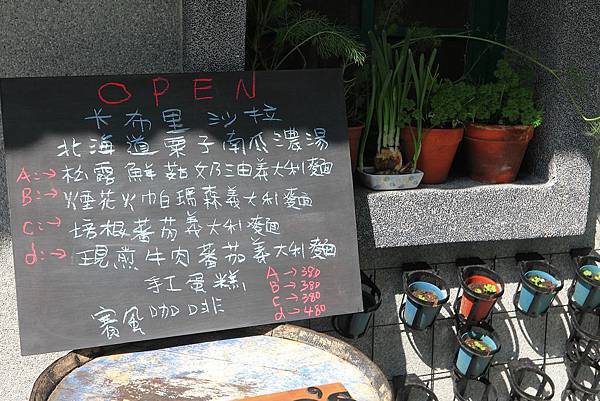 OPEN
卡布里沙拉
北海道栗子南瓜濃湯
A:→松露鮮菇奶油義大利麵
B:→煙花火帕瑪森義大利麵
C:→培根蕃茄義大利麵
d:→現煎牛肉蕃茄義大利麵
手工蛋糕
A→380
B→380
C→380
d→480
賽風咖啡